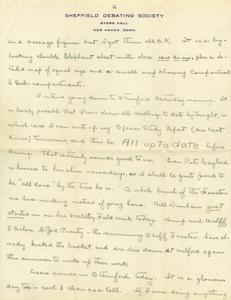 2
SHEFFIELD DEBATING SOCIETY
BYERS HALL
NEW HAVEN, CONN.
and acreage figures but I got them all O.K. It is a big-
looking double Elephant sheet white close and the age, plus a de-
tailed map of equal size and a small map showing Compartments
& Sub-compartments.
I intend going down to Stamford Saturday morning. It
is barely possible that I can drop all reading to date by tonight, in
which case I can write up my Spruce Study Report (due last
Xmas) tomorrow and thus be All up to date before
leaving. That certainly sounds good to me. Even Pete Gaylord
is bound to his chair nowadays, so it shall be quite good to
be "all done" by the time he is. A whole bunch of the Foresters
are here working instead of going home. Bill Durham just
started in on his Maltby Field work today. Hump and Wolff
& Silcox & Jed Presty - the remaining to buff Forester have al-
ready kicked the bucket and are due down at Milford again
this summer to make up their work.
Lucia arrives in Stamford today. It is a glorious
day too - cool & clear as a bell. If I were doing anything